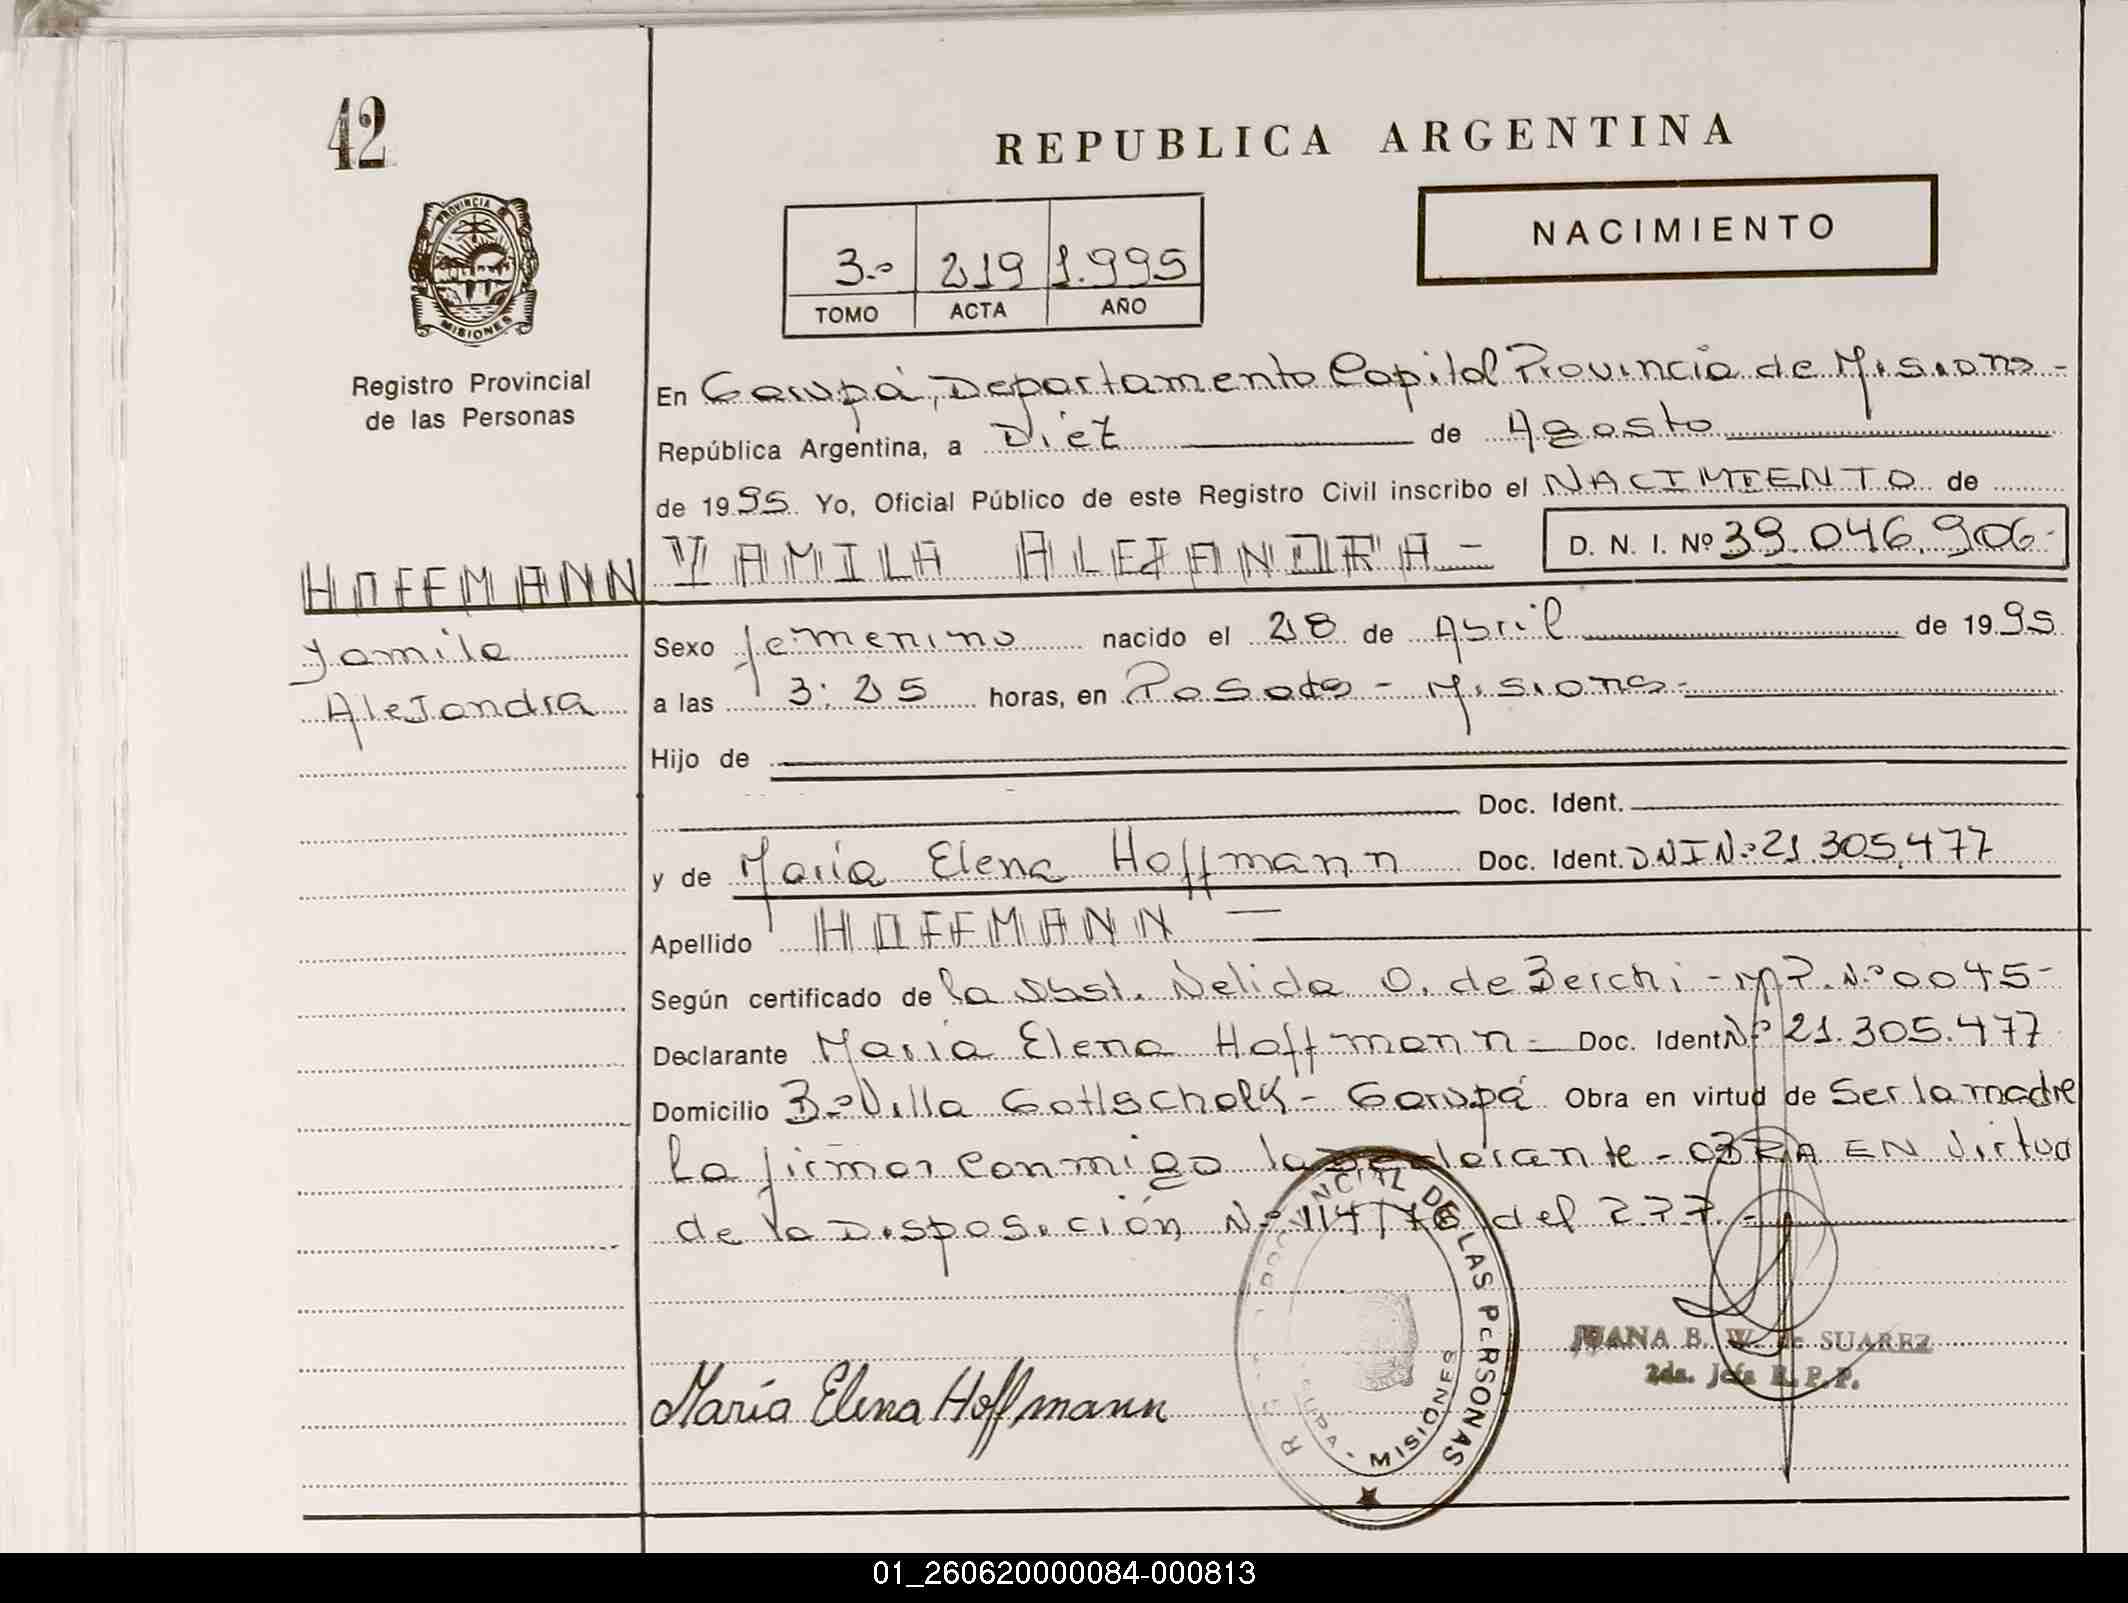 42
REPUBLICA ARGENTINA
NACIMIENTO
3.º 219 1.995
TOMO ACTA AÑO
PROVINCIA
MISIONES
Registro Provincial
de las Personas
En Garupá, Departamento Capital Provincia de Misiones -
República Argentina, a Diez de Agosto
de 1995. Yo, Oficial Público de este Registro Civil inscribo el NACIMIENTO de
HOFFMANN YAMILA ALEJANDRA - D. N. I. Nº 39.046.906-
Yamila
Alejandra
Sexo femenino nacido el 28 de Abril de 1995
a las 3:25 horas, en Posadas - Misiones -
Hijo de
Doc. Ident.
y de María Elena Hoffmann Doc. Ident. DNI Nº 21.305.477
Apellido HOFFMANN -
Según certificado de la Obst. Nelida O. de Berchi - MP. Nº 0045-
Declarante María Elena Hoffmann - Doc. Ident Nº 21.305.477
Domicilio Bº Villa Gottschalk - Garupá Obra en virtud de Ser la madre
La firman conmigo la declarante - OBRA EN Virtud
de la Disposición Nº 114/76 del R.P.P. -
PROVINCIAL DE LAS PERSONAS
MISIONES
JUANA B. W. de SUAREZ
2da. Jefe R.P.P.
María Elena Hoffmann
01_260620000084-000813